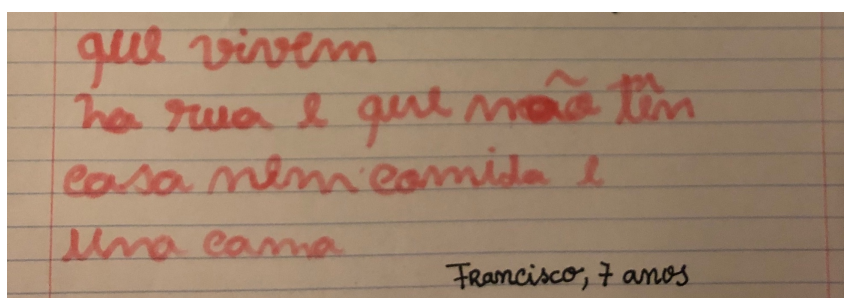 que vivem
na rua e que não tên
casa nem comida e
uma cama
Francisco, 7 anos